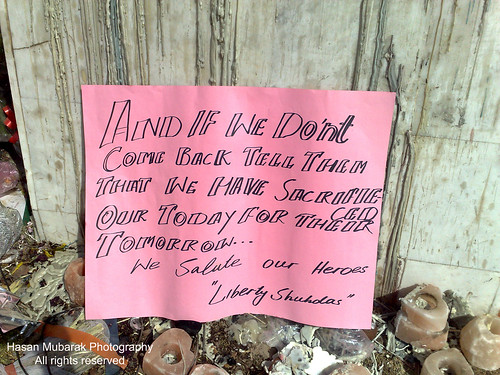 AND IF WE DON'T
COME BACK TELL THEM
THAT WE HAVE SACRIFIE-
CED
OUR TODAY FOR THEIR
TOMORROW...
We Salute our Heroes
"Liberty Shuhdas"
Hasan Mubarak Photography
All rights reserved